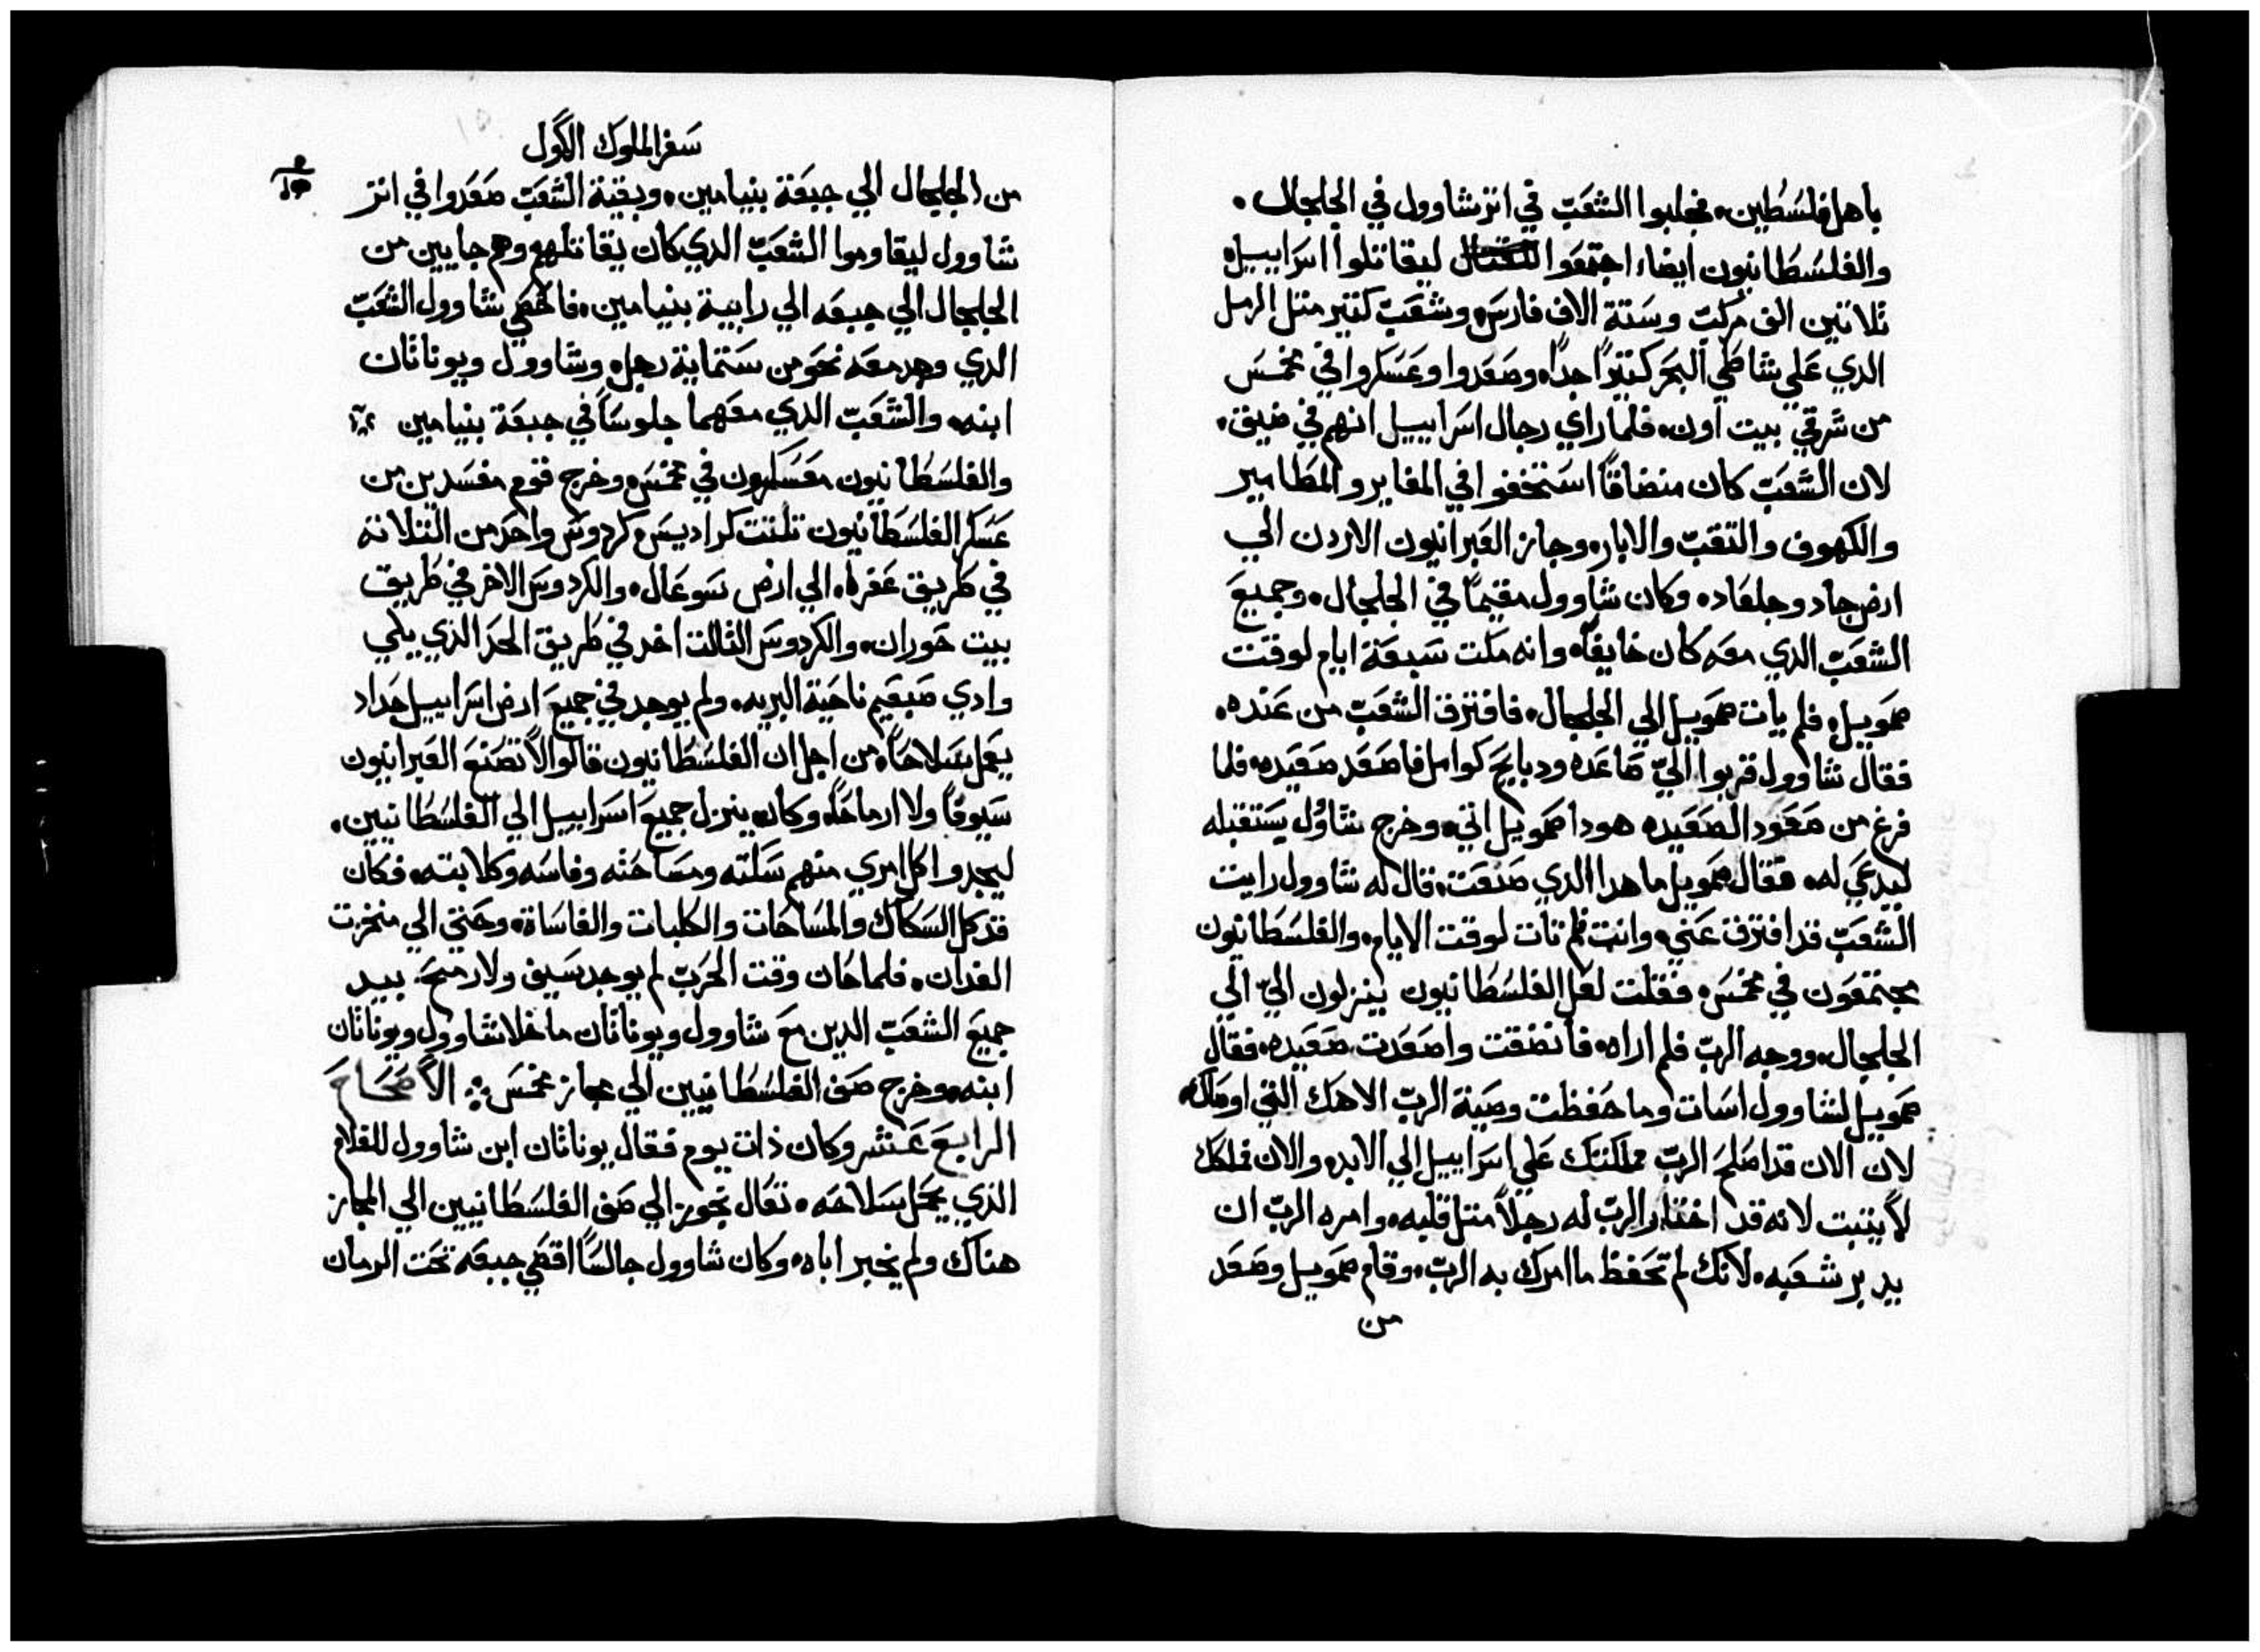 باهل فلسطين. فجلبوا الشعب في اثر شاوول في الجلجال.
والفلسطانيون ايضا اجتمعوا ليقاتلوا اسراييل
تلاتين الف مركب وستة الاف فارس وشعب كتير متل الرمل
الدي علي شاطي البحر كتيرًا جدًا. وصعدوا وعسكروا في مخمس
من شرقي بيت اون. فلما راي رجال اسراييل انهم في ضيق.
لان الشعب كان منضاقًا استخفوا في المغاير والمطامير
والكهوف والتقب والابار. وجاز العبرانيون الاردن الي
ارض جاد وجلعاد. وكان شاوول مقيمًا في الجلجال. وجميع
الشعب الدي معه كان خايفًا. وانه مكت سبعة ايام لوقت
صمويل. فلم يات صمويل الي الجلجال. فافترق الشعب من عنده.
فقال شاوول قربوا اليّ صاعده ودبايح كوامل فاصعد صعيده. فلما
فرغ من صعود الصعيده هودا صمويل اتي. وخرج شاوُل يستقبله
ليدعي له. فقال صمويل ما هدا الدي صنعت. قال له شاوول رايت
الشعب قد افترق عني. وانت فلم تات لوقت الايام. والفلسطانيون
مجتمعون في مخمس. فقلت لعل الفلسطانيون ينزلون اليّ الي
الجلجال. ووجه الرب فلم اراه. فانضقت واصعدت صعيده. فقال
صمويل لشاوول اسات وما حفظت وصية الرب الاهك التي اوصاك
لان الان قد اصلح الرب مملكتك علي اسراييل الي الابد. والان فملكك
لا يتبت لانه قد اختار الرب له رجلاً متل قلبه. وامره الرب ان
يدبر شعبه. لانك لم تحفظ ما امرك به الرب. وقام صمويل وصعد
من
سفر الملوك الاول
من الجلجال الي جبعة بنيامين. وبقية الشعب صعدوا في اتر
شاوول ليقاوموا الشعب الدي كان يقاتلهم وهم جايين من
الجلجال الي جبعه الي رابية بنيامين. فاحصي شاوول الشعب
الدي وجد معه نحو من ستماية رجل. وشاوول ويوناتان
ابنه. والشعب الدي معهما جلوسًا في جبعة بنيامين
والفلسطانيون معسكرون في مخمس. وخرج قوم مفسدين من
عسكر الفلسطانيون تلتت كراديس كردوس واحد من التلاته
في طريق عفره. الي ارض سوعال. والكردوس الاخر في طريق
بيت حوران. والكردوس التالت اخد في طريق الحد الذي يلي
وادي صبعيم ناحية البريه. ولم يوجد في جميع ارض اسراييل حداد
يعمل سلاحًا. من اجل ان الفلسطانيون قالوا لا تصنع العبرانيون
سيوفًا ولا ارماحًا. وكان ينزل جميع اسراييل الي الفلسطانيين.
ليجدوا كل امري منهم سكته ومساحته وفاسه وكلابته. فكان
قد كل السكاك والمساحات والكلبات والفاساة. وحتي الي منخزت
الفدان. فلما حان وقت الحرب لم يوجد سيف ولا رمح. بيد
جميع الشعب الدين مع شاوول ويوناتان ما خلا شاوول ويوناتان
ابنه. وخرج صف الفلسطانيين الي مجاز مخمس. الاصحاح
الرابع عشر وكان ذات يوم فقال يوناتان ابن شاوول للغلام
الذي يحمل سلاحه. تعال نجوز الي صف الفلسطانيين الي المجاز
هناك ولم يخبر اباه. وكان شاوول جالسًا اقصي جبعه تحت الرمان